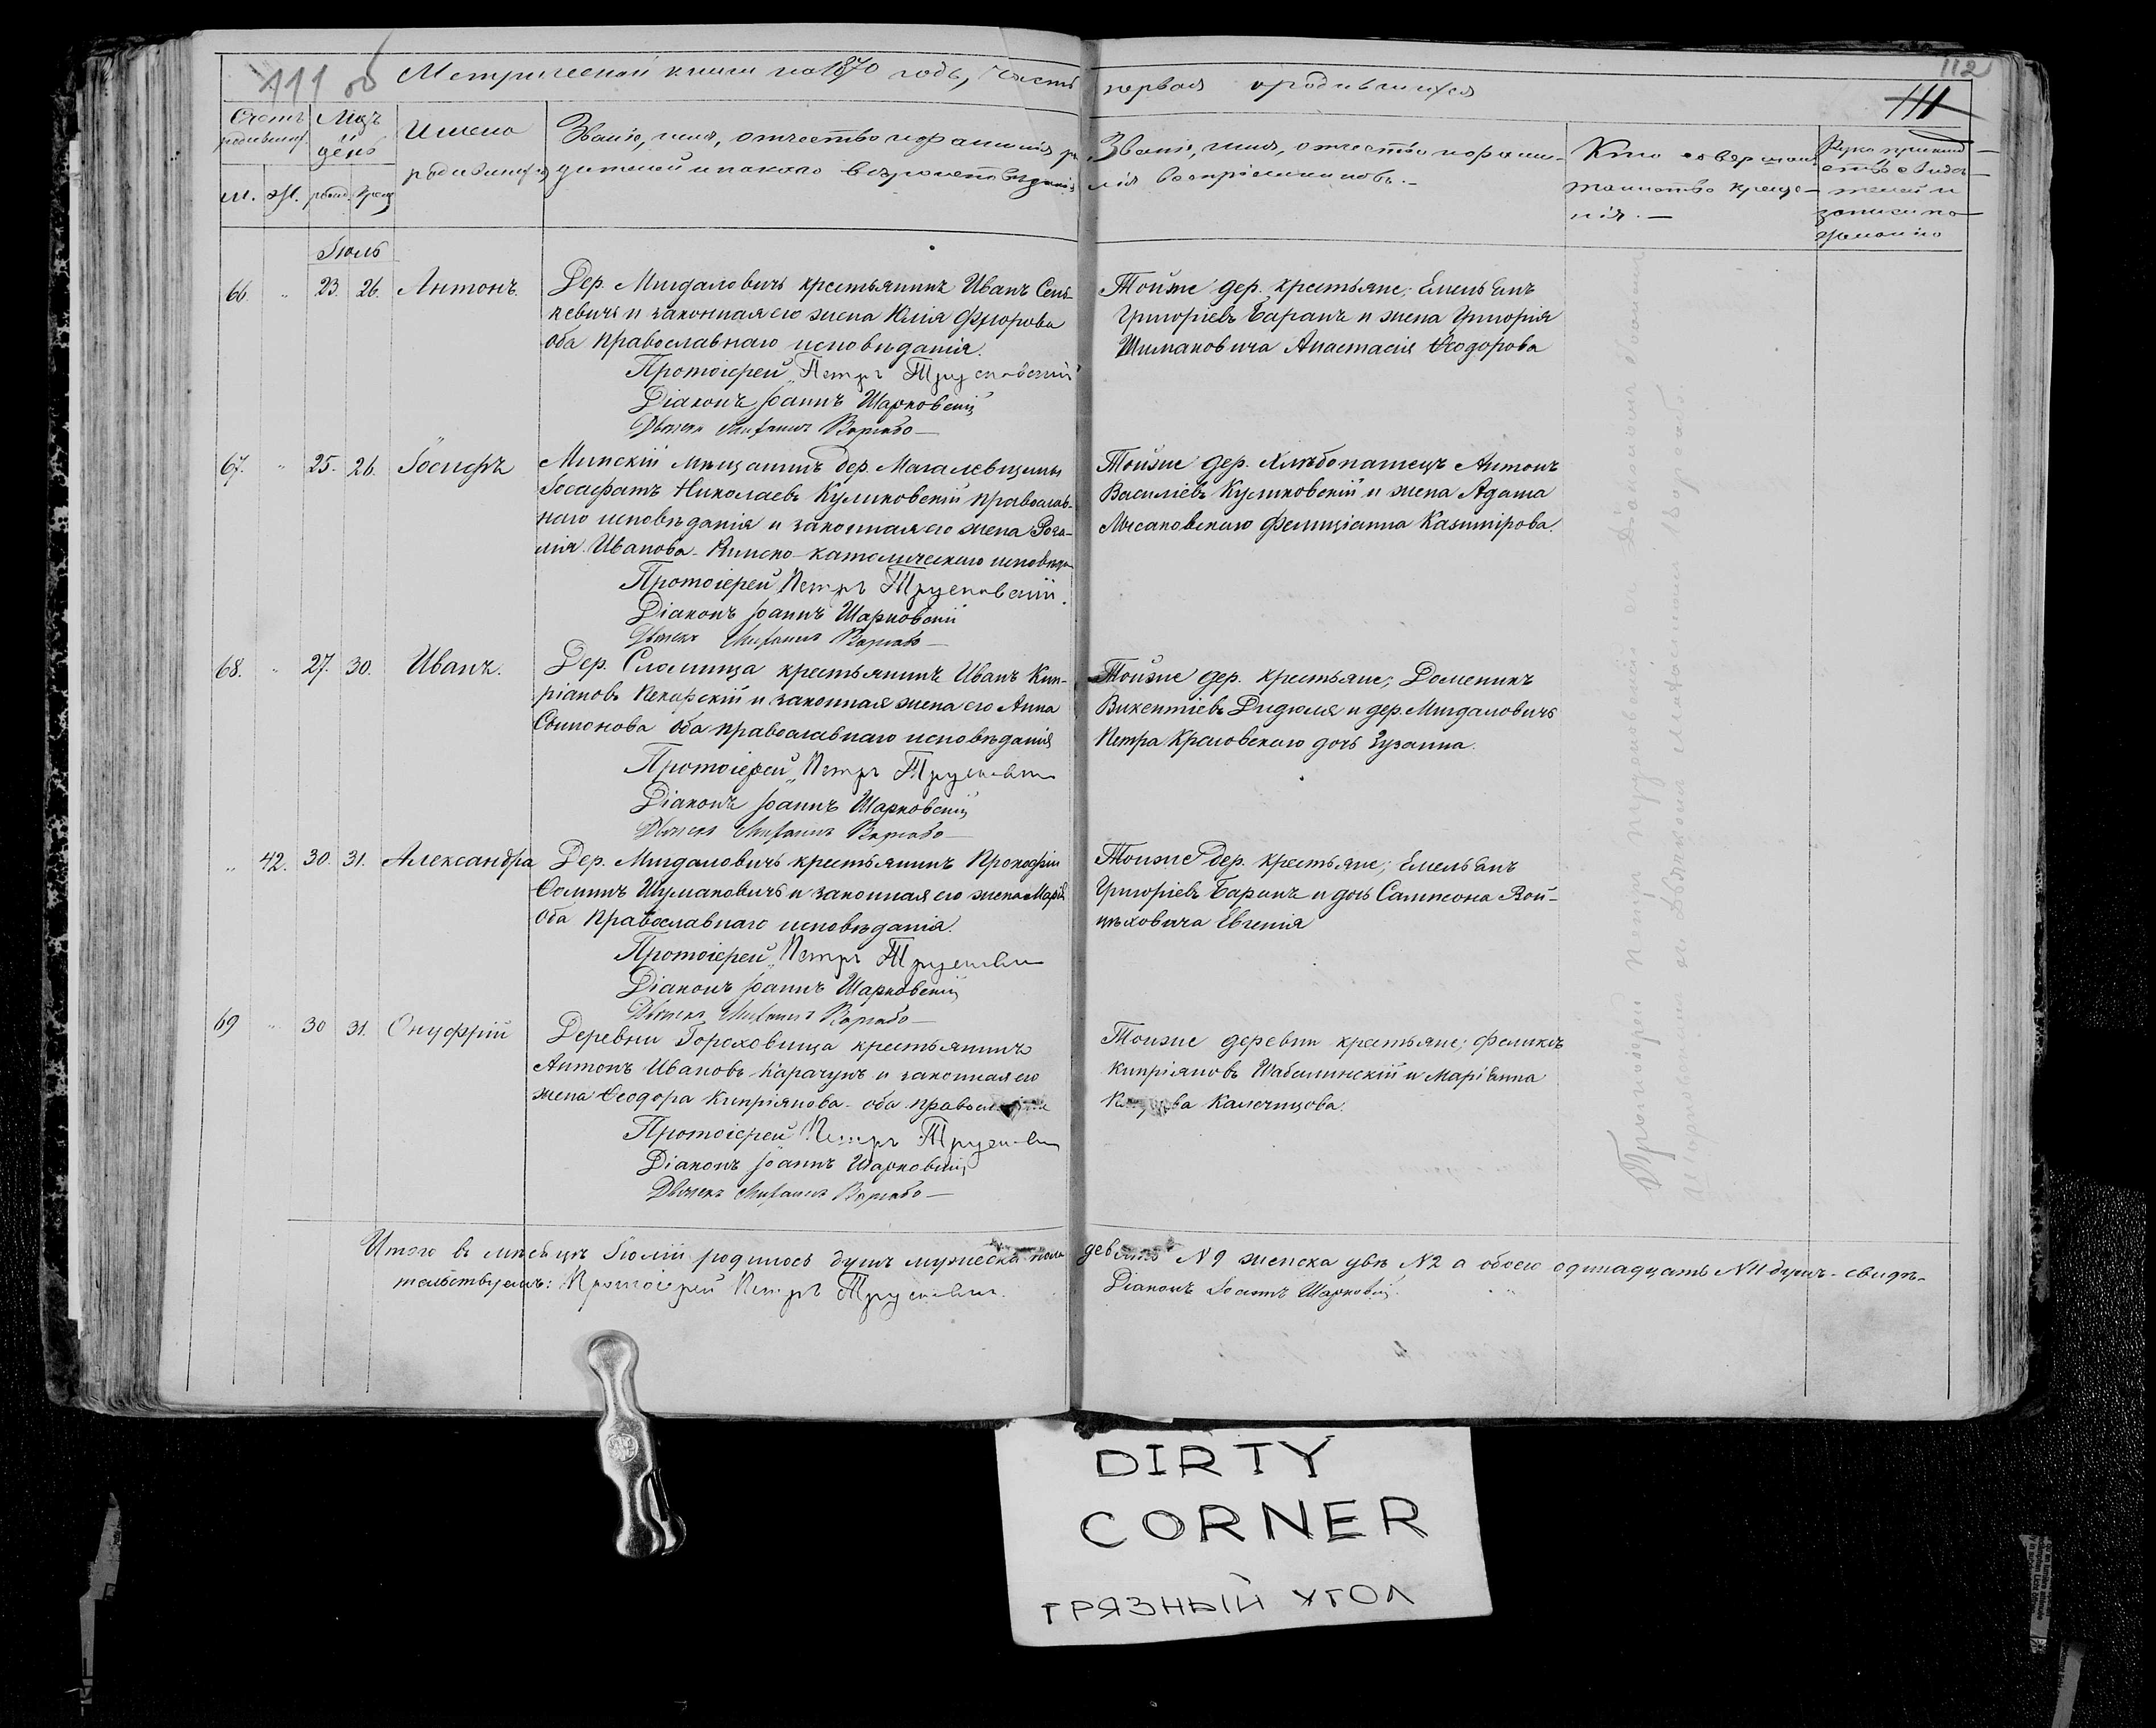 111 об
Метрической книги на 1870 годъ, Часть первая о родившихся
112
111
Счетъ родивших.
Мцъ
день
м. ж. рожд. крещ.
Имена
родившихся
Званіе, имя, отчество и фамилія ро-
дителей и какого вѣроисповѣданія
Званіе, имя, отчество и фами-
лія воспріемниковъ.-
Кто совершалъ
таинство креще-
нія.-
Рукоприклад-
ство свидѣ-
телей и
записи по
желанію
Іюль
66. " 23. 26. Антонъ.
Дер. Мигдаловичъ крестьянинъ Иванъ Сень-
кевичъ и законная его жена Юлія Фдорова
оба православнаго исповѣданія.
Протоіерей Петръ Трусковскій
Діаконъ Іоаннъ Шарковскій
Дьячекъ Михаилъ
Тойже дер. крестьяне; Емельянъ
Григоріевъ Баранъ и жена Григорія
Шимановича Анастасія Ѳеодорова
67. " 25. 26. Іосифъ
Минскій мѣщанинъ дер. Магалевщины
Іосафатъ Николаевъ Куликовскій православ-
наго исповѣданія и законная его жена Роза-
лія Иванова-Римско-католическаго исповѣд
Протоіерей Петръ Трусковскій.
Діаконъ Іоаннъ Шарковскій
Дьячекъ Михаилъ
Тойже дер. Хлѣбопашецъ Антонъ
Василіевъ Куликовскій и жена Адама
Лысаковскаго Фелиціанна Казимірова.
68. " 27. 30. Иванъ.
Дер. Сломища крестьянинъ Иванъ Кип-
ріановъ Пекарскій и законная жена его Анна
Симонова оба православнаго исповѣданія
Протоіерей Петръ Трусковскій
Діаконъ Іоаннъ Шарковскій
Дьячекъ Михаилъ
Тойже дер. крестьяне; Доменикъ
Викентіевъ Дидюля и дер. Мигдаловичъ
Петра Красовскаго дочь Зузанна.
" 42. 30. 31. Александра
Дер. Мигдаловичъ крестьянинъ Прокофій
Ѳоминъ Шумановичъ и законная его жена Марія
оба Православнаго исповѣданія.
Протоіерей Петръ Трусковскій
Діаконъ Іоаннъ Шарковскій
Дьячекъ Михаилъ
Тойже дер. крестьяне; Емельянъ
Григоріевъ Баранъ и дочь Сампсона Вой-
цѣховича Евгенія
69 " 30 31. Онуфрій
Деревни Гореховища крестьянинъ
Антонъ Ивановъ Карачунъ и законная его
жена Ѳеодора Кипріянова - оба
Протоіерей Петръ Трусковскій
Діаконъ Іоаннъ Шарковскій
Дьячекъ Михаилъ
Тойже деревни крестьяне; Феликсъ
Кипріяновъ Шабалинскій и Маріанна
Калечицова.
Итого въ мѣсяцѣ Іюлѣ родилось душъ мужеска пола девять N 9 женска двѣ N 2 а обоего одинадцать N 11 душъ - свидѣ-
тельствуемъ: Протоіерей Петръ Трусковскій. Діаконъ Іоаннъ Шарковскій.
DIRTY
CORNER
ГРЯЗНЫЙ УГОЛ